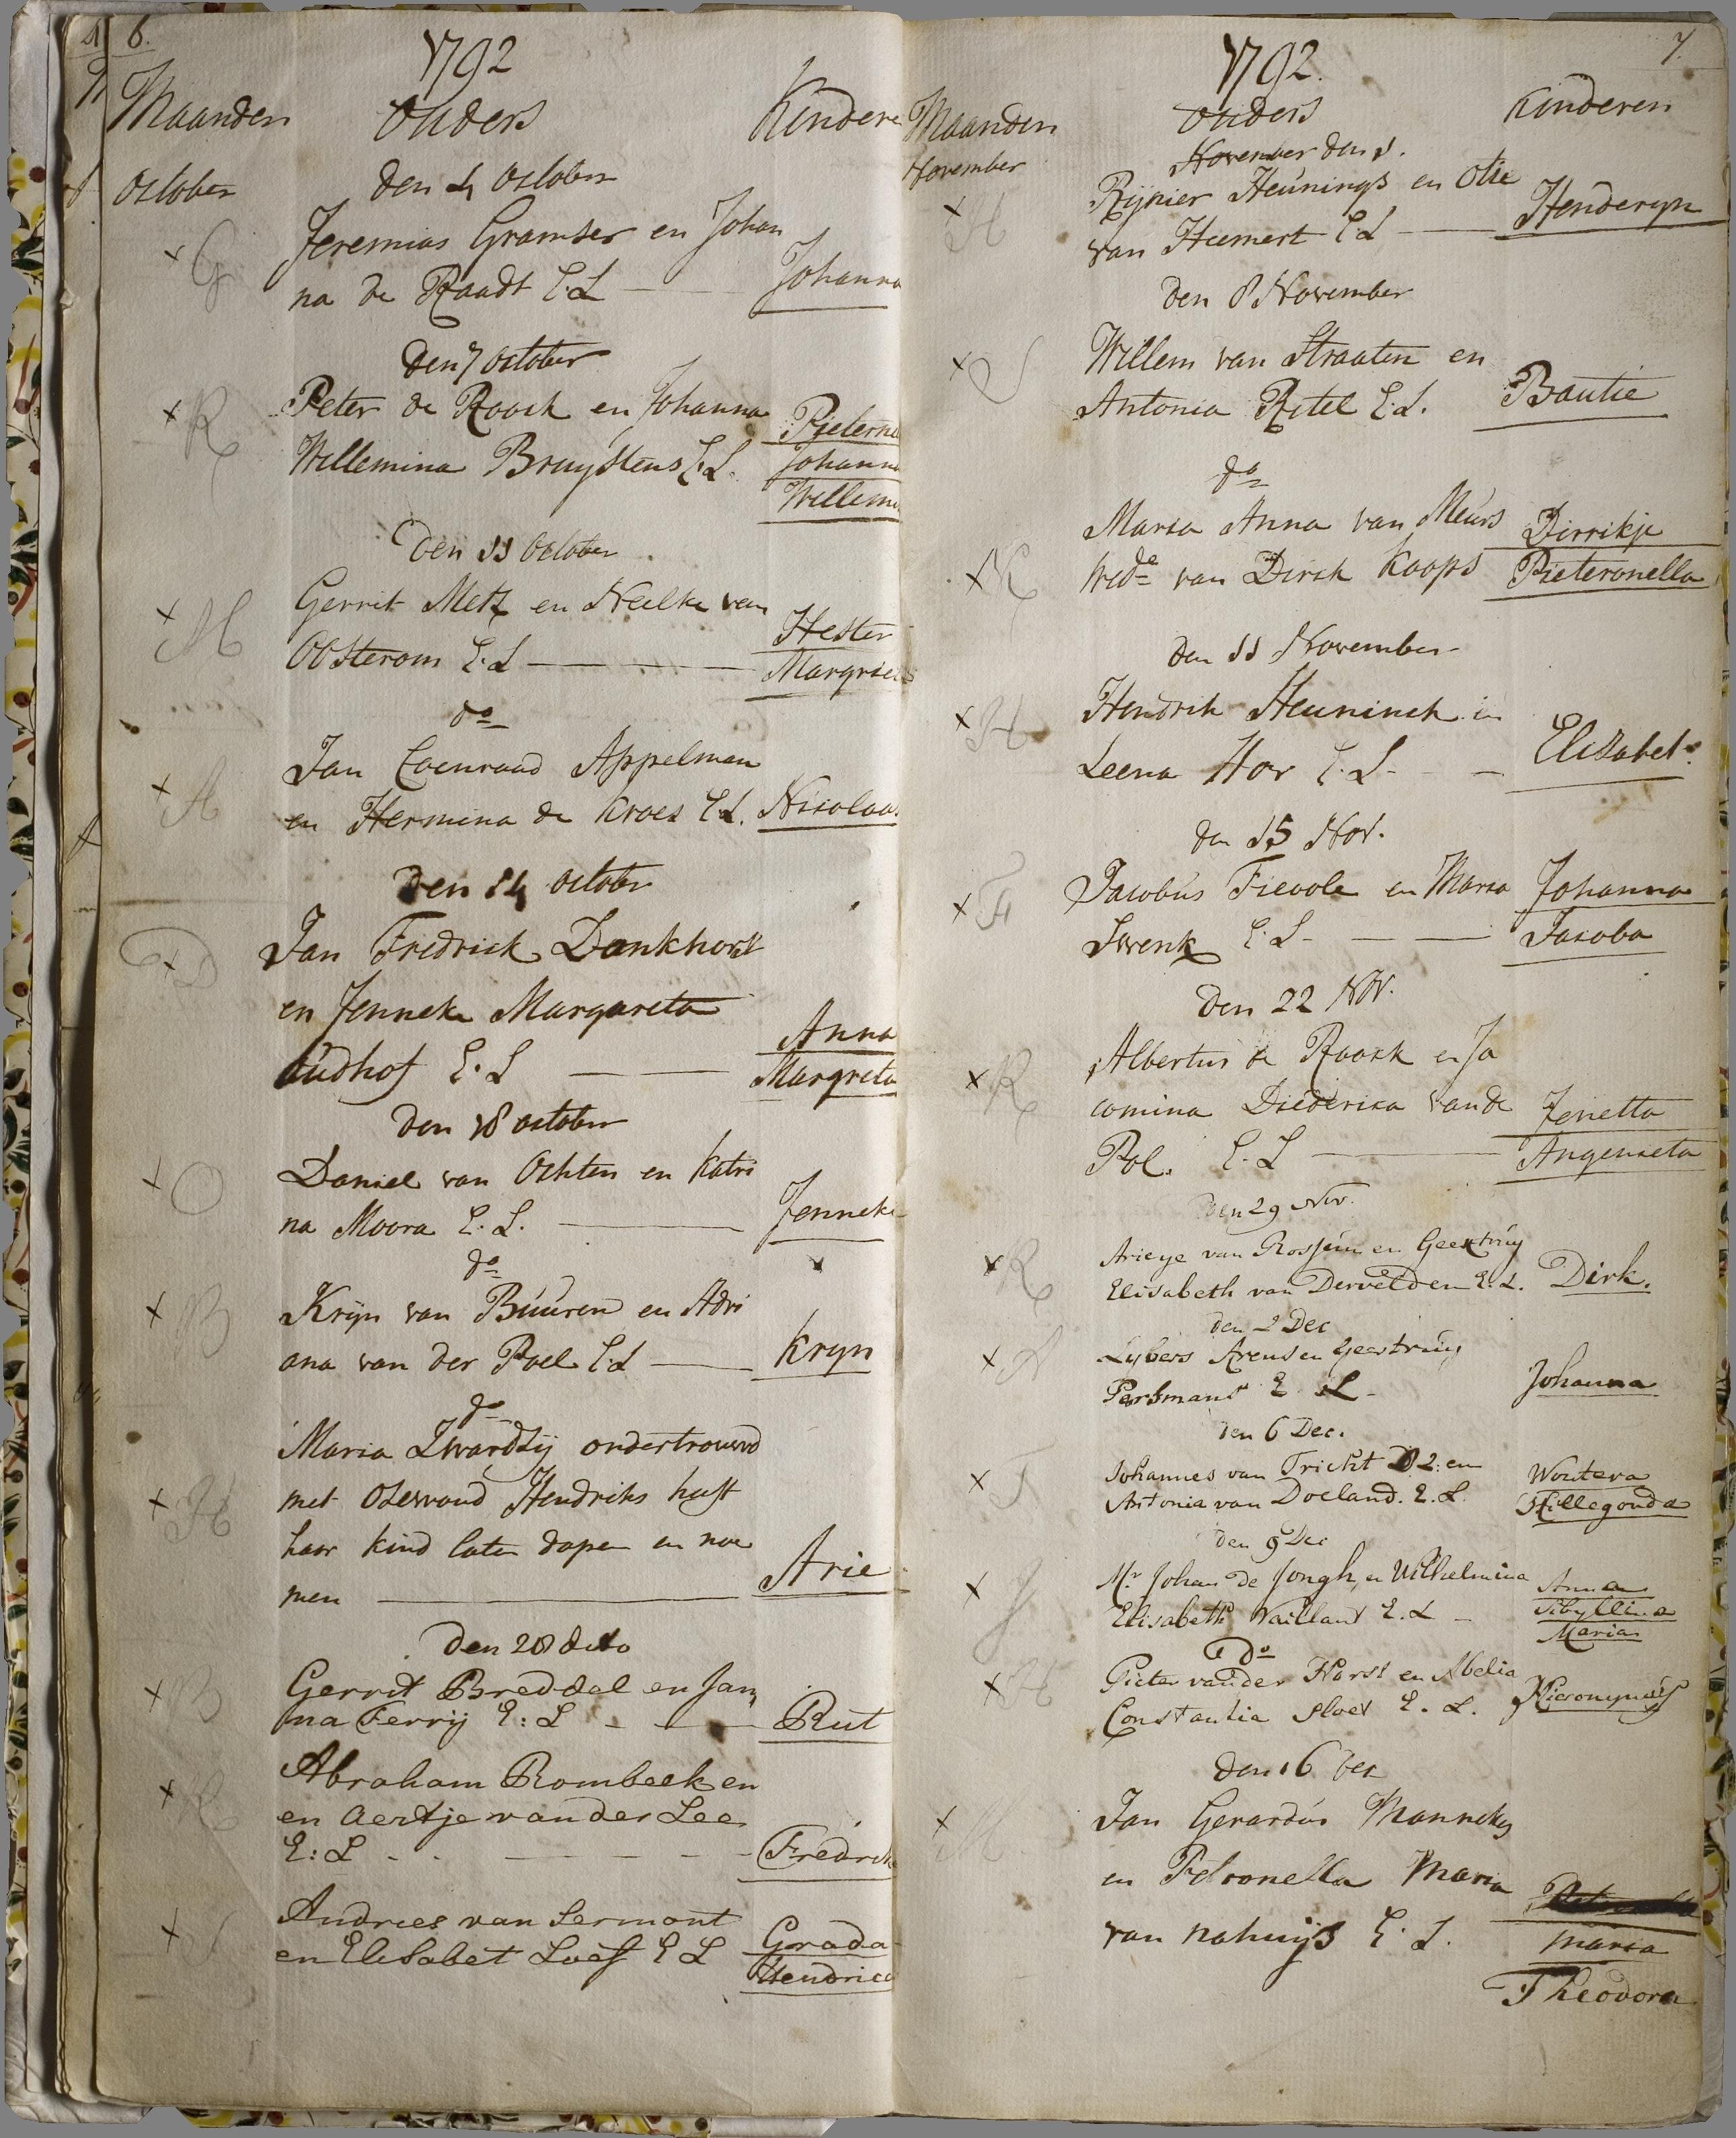 6.
1792
Maanden Ouders Kindere
October den 4 October
Jeremias Gramser en Johan
na de Raadt E.L Johanna
den 7 October
Peter de Roock en Johanna Pieterna
Willemina Bruystens E.L. Johanna
Willemi
den 11 October
Gerrit Metz en Neelke van Hester
Oosterom E.L Margriet
do
Jan Coenraad Appelman
en Hermina de Kroes E.L. Nicolaas
den 14 October
Jan Fredrick Dankhorst
en Jenneke Margareta Anna
Oudhof E.L Margreta
den 18 october
Daniel van Ochten en Katri
na Moora E.L. Jenneke
do
Krijn van Buuren en Adri
ana van der Poel E.L Kryn
do
Maria Zwardzij ondertrouwd
met Hendriks heeft
haar kind laten dopen en noe
men Arie
den 28 dito
Gerrit Breddal en Jan
na Ferrij E:L Rut
Abraham Rombeek en
en Aertje van der Lee
E:L Fredrik
Andries van Sermont Grada
en Elisabet Loef E L Hendrica
7.
1792.
Maanden Ouders Kinderen
November November den 1.
Rijnier Heunings en Otie Henderyn
van Heemert E L
den 8 November
Willem van Straaten en
Antonia Ritel E.L. Bautie
do
Maria Anna van Meurs Dirrikje
wede van Dirck Koops Pieteronella
den 11 November
Hendrik Heuninck en
Leena Hor E.L. Elisabet
den 15 Nov.
Jacobus Fievole en Maria Johanna
Swenk E.L. Jacoba
den 22 Nov.
Albertus de Roock en Ja
comina Diederica vande Jenetta
Pol. E.L Angenieta
den 29 Nov.
Arieye van Rossum en Geertruy
Elisabeth van Dervelden E.L. Dirk.
den 2 Dec
Lybers Arens en Geertruy
Persmans E L Johanna
den 6 Dec.
Johannes van Tricht DZ. en Woutera
Antonia van Doeland. E.L. Hillegonda
den 9 Dec
Mr Johan de Jongh, en Wilhelmina Anna
Elisabeth Vaillant E.L Sibyllina
Maria
do
Pieter vander Horst en Abelia Hieronymus
Constantia Ploes E.L.
den 16 Dec
Jan Gerardus Mannekes
en Petronella Maria
van Nahuijs E.L. Maria
Theodora